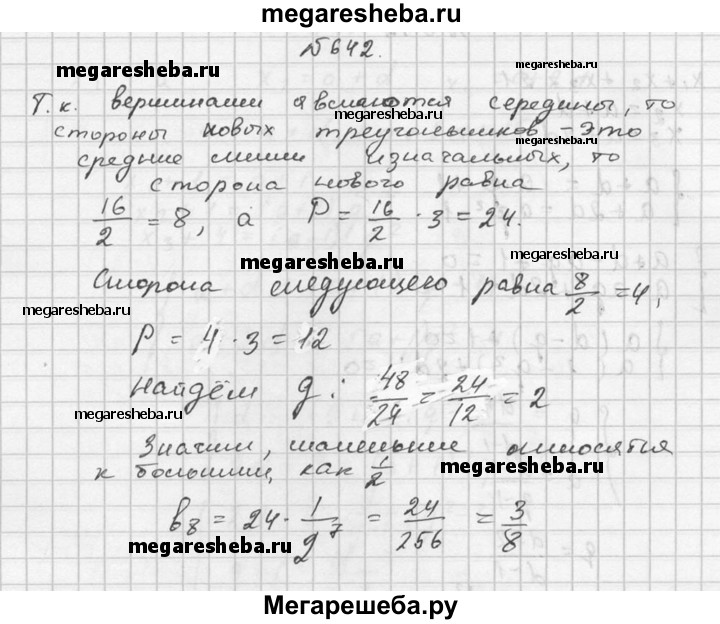 megaresheba.ru
№642.
megaresheba.ru
Т.к. вершинами являются середины, то
megaresheba.ru
стороны новых треугольников - это
средние линии изначальных, то
megaresheba.ru
сторона нового равна
16/2 = 8, а P = 16/2 · 3 = 24.
megaresheba.ru
megaresheba.ru
Сторона следующего равна 8/2 = 4,
megaresheba.ru
P = 4 · 3 = 12
megaresheba.ru
Найдём q: 48/24 = 24/12 = 2
megaresheba.ru
Значит, маленькие относятся
к большим, как 1/2
megaresheba.ru
b₈ = 24 · 1/2⁷ = 24/256 = 3/8
megaresheba.ru
Мегарешеба.ру